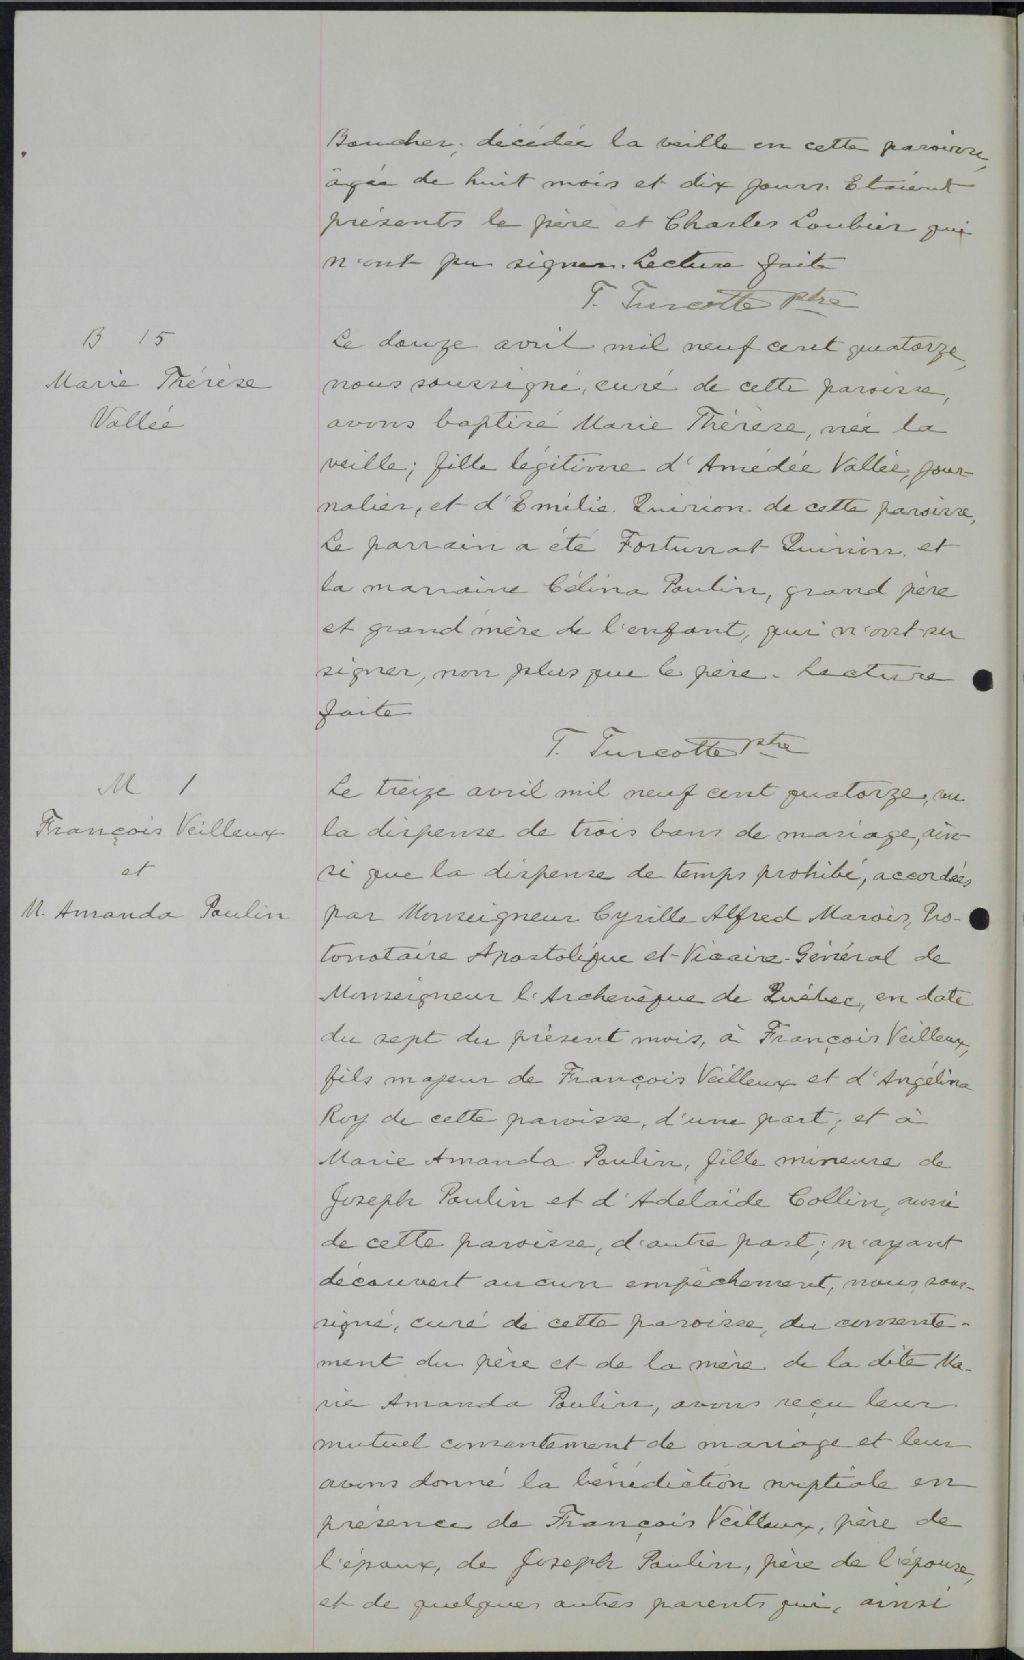 Boucher, décédée la veille en cette paroisse,
âgée de huit mois et dix jours. Etaient
présents le père et Charles Loubier qui
n'ont pu signer. Lecture faite
T. Turcotte ptre
B 15
Marie Thérèse
Vallée
Le douze avril mil neuf cent quatorze,
nous soussigné, curé de cette paroisse,
avons baptisé Marie Thérèse, née la
veille; fille légitime d'Amédée Vallée, jour-
nalier, et d'Emélie Quirion de cette paroisse,
Le parrain a été Fortunat Quirion et
la marraine Célina Poulin, grand père
et grand'mère de l'enfant, qui n'ont su
signer, non plus que le père. Lecture
faite
T. Turcotte ptre
M 1
François Veilleux
et
M. Amanda Poulin
Le treize avril mil neuf cent quatorze, vu
la dispense de trois bans de mariage, ain-
si que la dispense de temps prohibé, accordées
par Monseigneur Cyrille Alfred Marois, Pro-
tonotaire Apostolique et Vicaire-Général de
Monseigneur l'Archevêque de Québec, en date
du sept du présent mois, à François Veilleux,
fils majeur de François Veilleux et d'Angélina
Roy de cette paroisse, d'une part; et à
Marie Amanda Poulin, fille mineure de
Joseph Poulin et d'Adelaïde Collin, aussi
de cette paroisse, d'autre part; n'ayant
découvert aucun empêchement, nous, sous-
signé, curé de cette paroisse, du consente-
ment du père et de la mère de la dite Ma-
rie Amanda Poulin, avons reçu leur
mutuel consentement de mariage et leur
avons donné la bénédiction nuptiale en
présence de François Veilleux, père de
l'époux, de Joseph Poulin, père de l'épouse,
et de quelques autres parents qui, ainsi